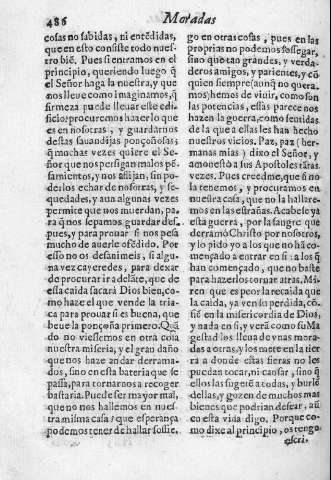 486 Moradas
cosas no sabidas, ni entẽdidas,
que en esto consiste todo nues-
tro biẽ. Pues si entramos en el
principio, queriendo luego q̃
el Señor haga la nuestra, y que
nos lleue como imaginamos, q̃
firmeza puede lleuar este edi-
ficio: procuremos hazer lo que
es en nosotras, y guardarnos
destas sauandijas ponçoñosas:
q̃ muchas vezes quiere el Se-
ñor que nos persigan malos pẽ-
samientos, y nos aflijan, sin po-
derlos echar de nosotras, y se-
quedades, y aun algunas vezes
permite que nos muerdan, pa-
ra q̃ nos sepamos guardar des-
pues, y para prouar si nos pesa
mucho de auerle ofẽdido. Por
esso no os desanimeis, si algu-
na vez cayeredes, para dexar
de procurar ir adelãte, que de
essa caida sacarà Dios bien, co-
mo haze el que vende la tria-
ca para prouar si es buena, que
beue la ponçoña primero. Quã
do no viessemos en otra cosa
nuestra miseria, y el gran daño
que nos haze andar derrama-
dos, sino en esta bateria que se
passa, para tornarnos a recoger
bastaria. Puede ser mayor mal,
que no nos hallemos en nues-
tra misma casa? que esperança
podemos tener de hallar sossie-
go en otras cosas, pues en las
proprias no podemos sossegar,
sino que tan grandes, y verda-
deros amigos, y parientes, y cõ
quien siempre (aunq̃ no quera-
mos) hemos de viuir, como son
las potencias, ellas parece nos
hazen la guerra, como sentidas
de la que a ellas les han hecho
nuestros vicios. Paz, paz (her-
manas mias) dixo el Señor, y
amonestò a sus Apostoles tãtas
vezes. Pues creedme, que si no
la tenemos, y procuramos en
nuestra casa, que no la hallare-
mos en las estrañas. Acabese ya
esta guerra, por la sangre que
derramò Christo por nosotros,
y lo pido yo a los que no hã co-
mençado a entrar en si: a los q̃
han començado, que no baste
para hazerlos tornar atras. Mi-
ren que es peor la recaida que
la caida, ya vẽn su perdida, cõ-
fiẽ en la misericordia de Dios,
y nada en si, y verà como su Ma
gestad los lleua de vnas mora-
das a otras, y los mete en la tier
ra a donde estas fieras no les
puedan tocar, ni cansar, sino q̃
ellos las sugetẽ a todas, y burlẽ
dellas, y gozen de muchos mas
bienes que podrian dessear, aũ
en esta vida digo. Porque co-
mo dixe al principio, os tengo
escri-